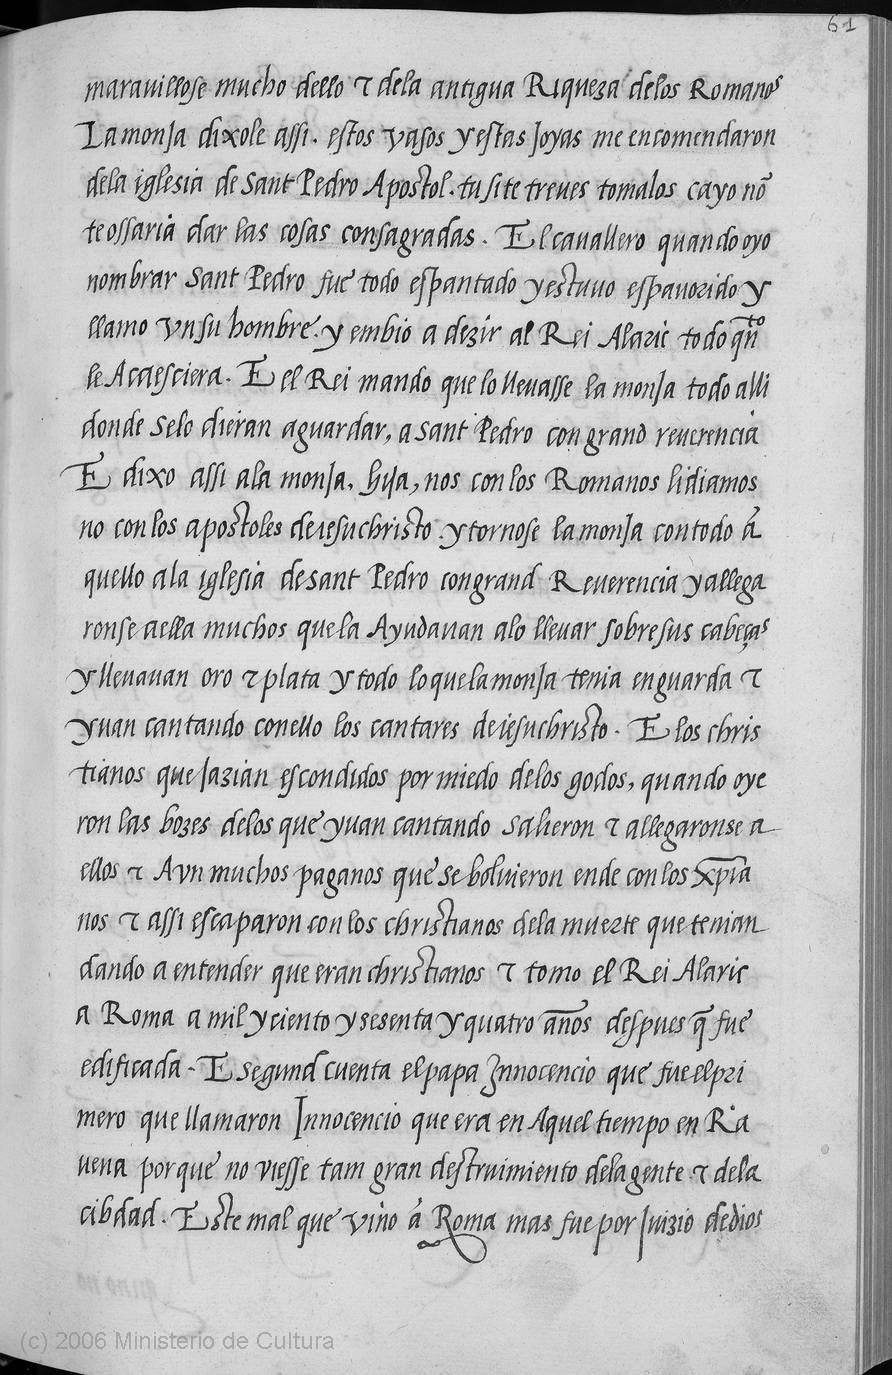 61
marauillose mucho dello τ dela antigua Riqueza delos Romanos
La monJa dixole assi. estos vasos y estas Joyas me encomendaron
dela iglesia de Sant Pedro Apostol. tu si te treues tomalos ca yo nō
te ossaria dar las cosas consagradas. El cauallero quando oyo
nombrar Sant Pedro fue todo espantado y estuuo espauorido y
llamo vn su hombre. y embio a dezir al Rei Alaric todo qñto
le Acaesciera. E el Rei mando que lo lleuasse la monJa todo alli
donde Selo dieran aguardar, a sant Pedro con grand reuerencia
E dixo assi ala monJa. hiJa, nos con los Romanos lidiamos
no con los apostoles de iesuchristo. y tornose la monJa con todo á
quello ala iglesia de sant Pedro con grand Reuerencia y allega
ronse aella muchos que la Ayudauan alo lleuar sobre sus cabeças
y lleuauan oro τ plata y todo lo que la monJa tenia en guarda τ
yuan cantando con ello los cantares de iesuchristo. E los chris
tianos que Jazian escondidos por miedo delos godos, quando oye
ron las bozes delos que yuan cantando salieron τ allegaronse a
ellos τ Avn muchos paganos que se boluieron ende con los xp̄ia
nos τ assi escaparon con los christianos dela muerte que tenian
dando a entender que eran christianos τ tomo el Rei Alaric
a Roma a mil y ciento y sesenta y quatro años despues q̄ fue
edificada. E segund cuenta el papa Innocencio que fue el pri
mero que llamaron Innocencio que era en Aquel tiempo en Ra
uena porque no viesse tam gran destruimiento dela gente τ dela
cibdad. Este mal que vino á Roma mas fue por Juizio de dios
(c) 2006 Ministerio de Cultura